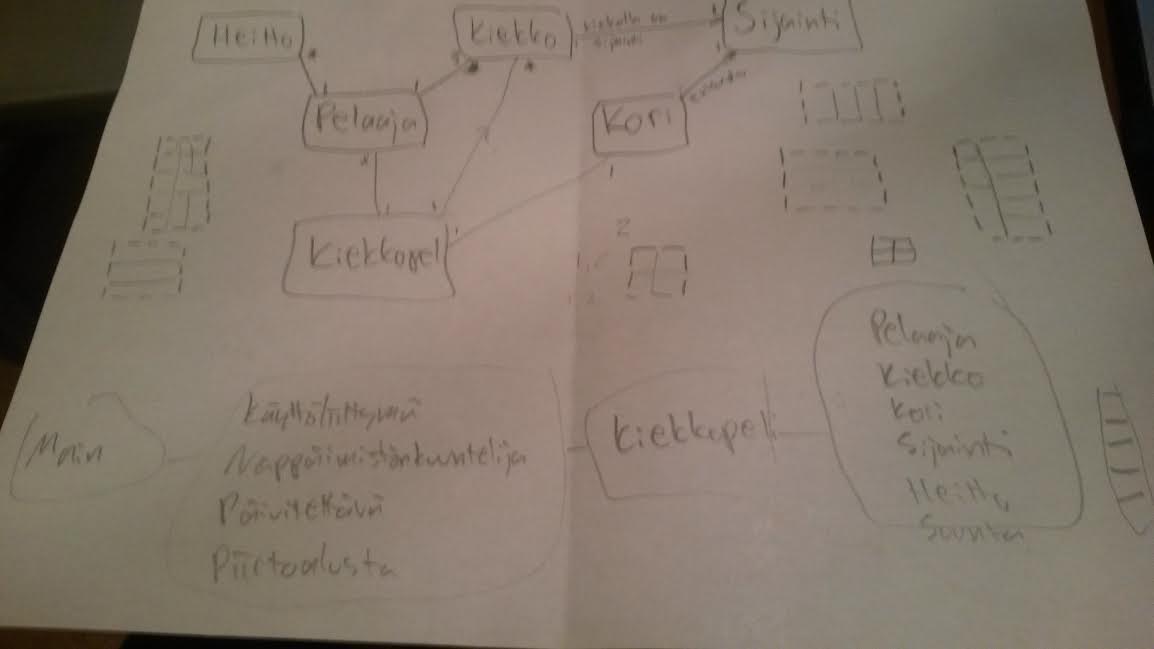 Heitto
Kiekko
Sijainti
*
1
1
1
1
*
*
1
Pelaaja
Kori
*
1
1
1
1
Kiekkopeli
2
Main
Käyttöliittymä
Näppäimistönkuuntelija
Päivitettävä
Piirtoalusta
Kiekkopeli
Pelaaja
Kiekko
Kori
Sijainti
Heitto
Suunta